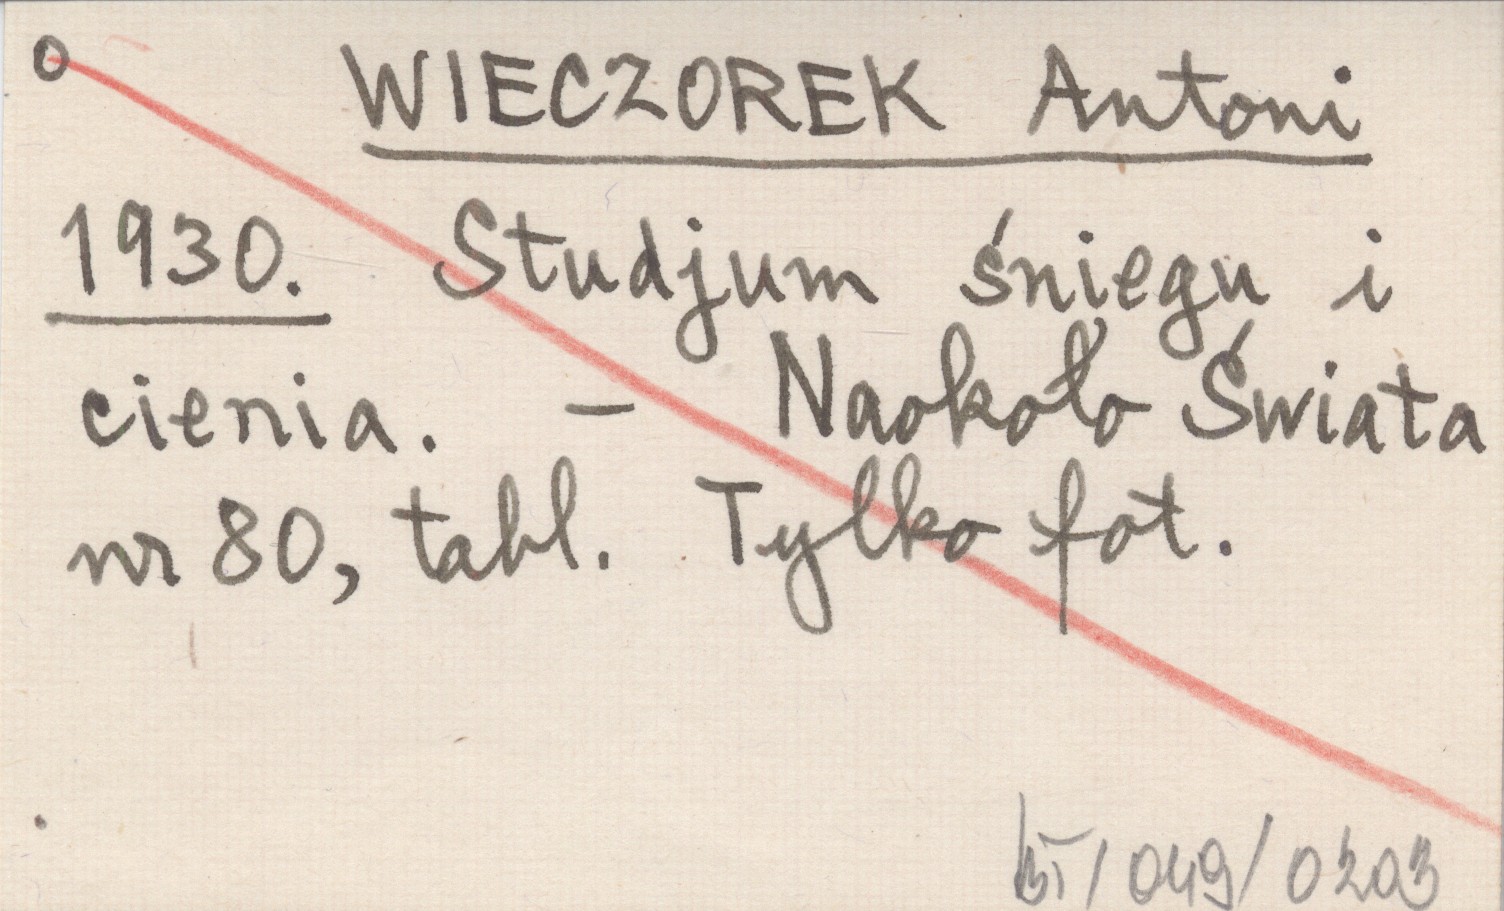 O WIECZOREK Antoni
1930. Studjum śniegu i
cienia. – Naokoło Świata
nr 80, tabl. Tylko fot.
/049/0203